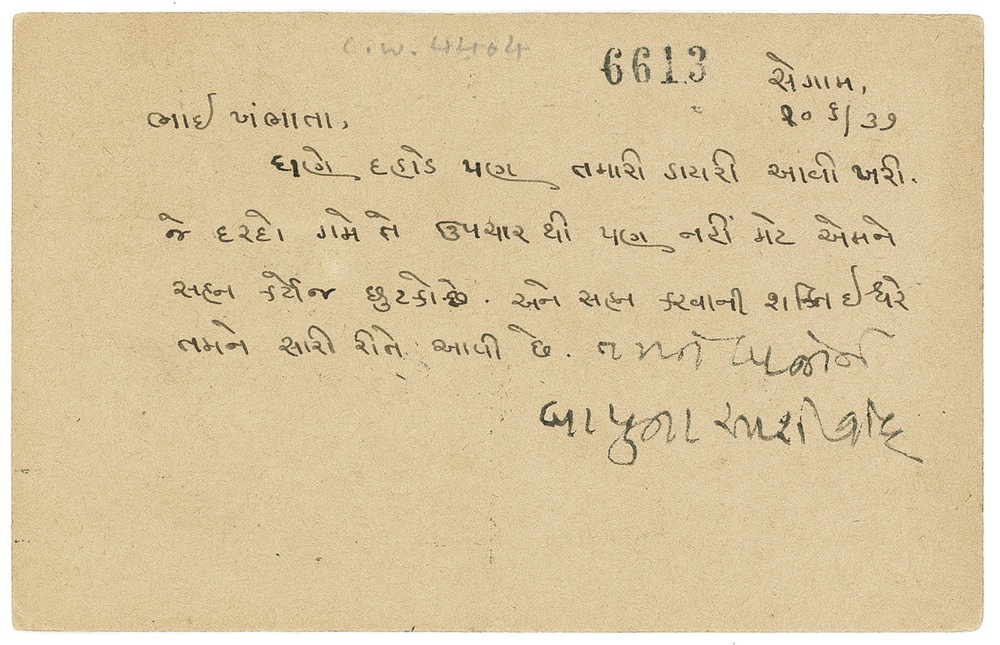 C.W. 4404
6613
સેગામ,
ભાઈ ખંભાતા,
૨૦ ૬/૩૭
ઘણે દહાડે પણ તમારી ડાયરી આવી ખરી.
જે દરદો ગમે તે ઉપચાર થી પણ નહીં મટે એમને
સહન કર્યેજ છુટકો છે. અને સહન કરવાની શક્તિ ઈશ્વરે
તમને સારી રીતે આપી છે. તમને
બાપુના આશીર્વાદ